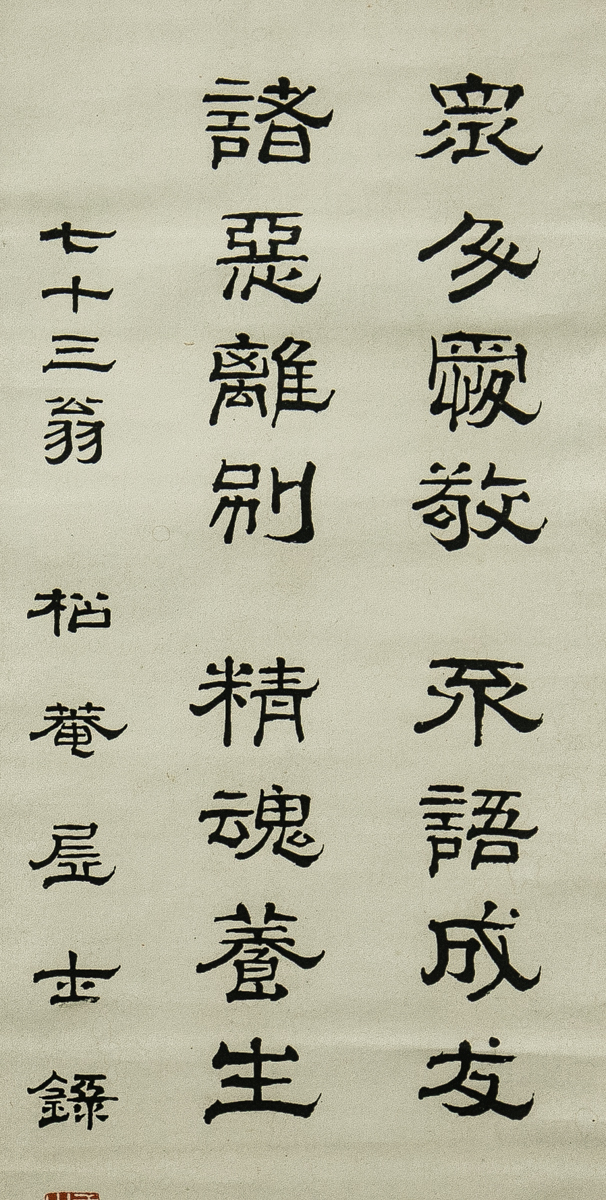 眾多愛敬 不語成友
諸惡離別 精魂養生
七十三翁 柗菴居士錄